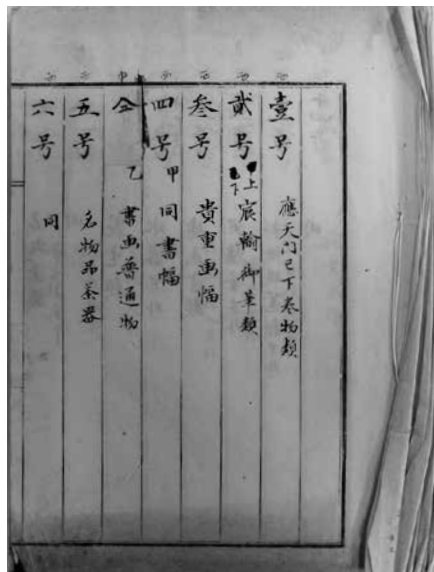 壹号 應天門已下巻物類
貳号 上下 宸翰御筆類
叁号 貴重画幅
四号 甲 同書幅
仝 乙 書画普通物
五号 名物品茶器
六号 同